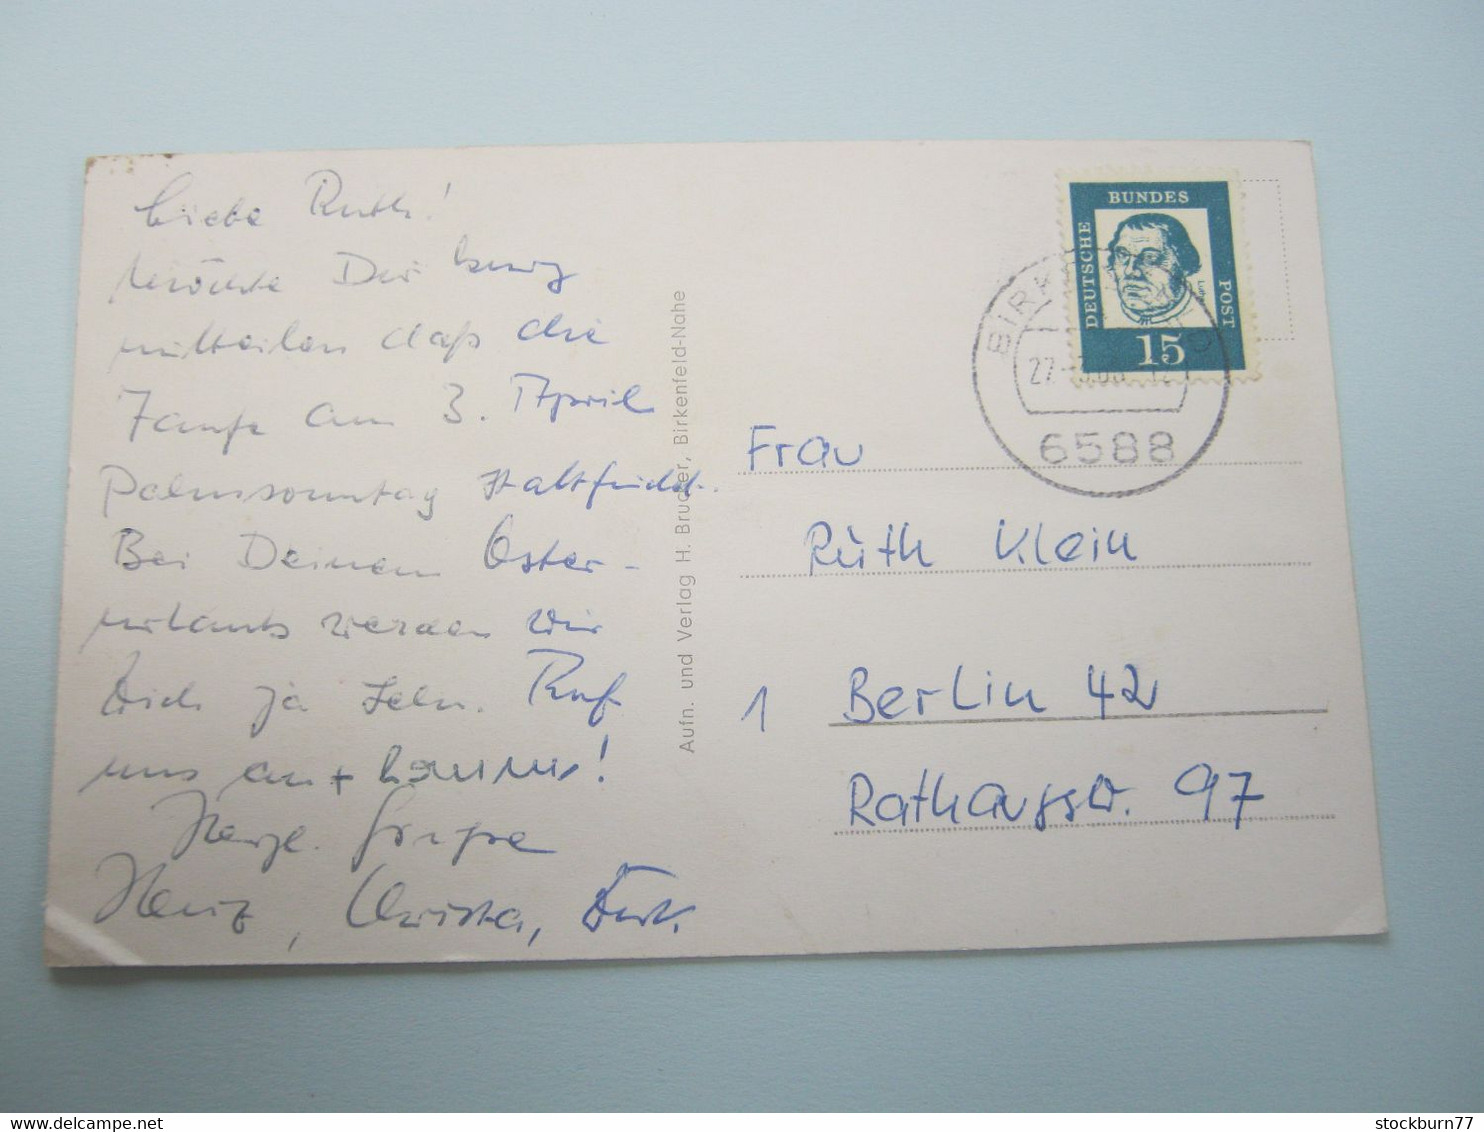 Liebe Ruth!
Möchte Dir kurz
mitteilen daß die
Taufe am 3. April
Palmsonntag stattfindet.
Bei Deinem Oster-
urlaub werden wir
Dich ja sehn. Ruf
uns an + komme!
Herzl. Grüße
Heinz, Christa, Dirk.
Aufn. und Verlag H. Brucker, Birkenfeld-Nahe
DEUTSCHE
BUNDES
POST
Luther
15
BIRK
27.-3.
6588
Frau
Ruth Klein
1 Berlin 42
Rathausstr. 97
stockburn77